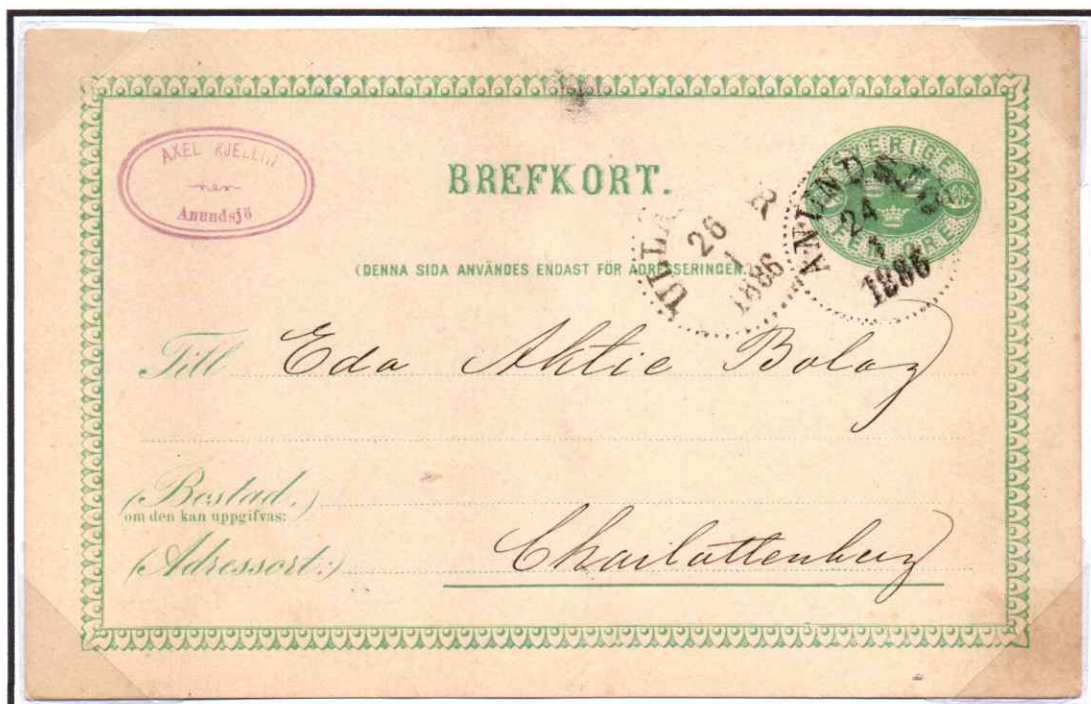 AXEL KJELLIN
Anundsjö
BREFKORT.
SVERIGE
FEM ÖRE
ANUNDSJÖ
24
1
1886
26
1
1886
(DENNA SIDA ANVÄNDES ENDAST FÖR ADRESSERINGEN.)
Till Eda Aktie Bolag
(Bostad,)
om den kan uppgifvas:
(Adressort:) Charlottenberg